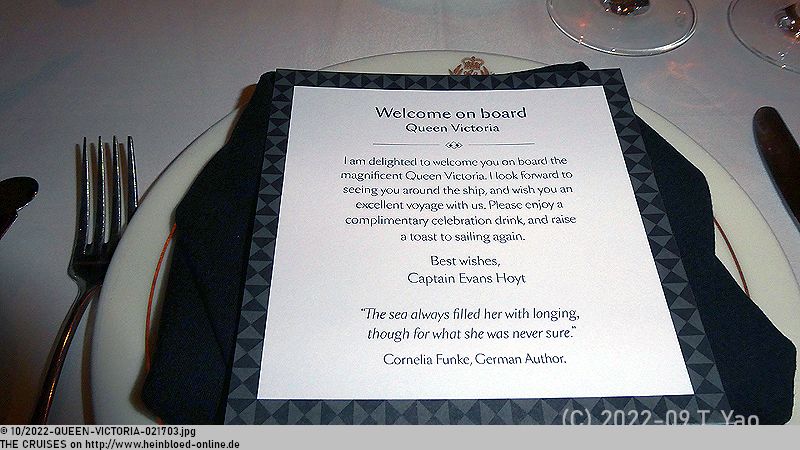 Welcome on board
Queen Victoria
I am delighted to welcome you on board the
magnificent Queen Victoria. I look forward to
seeing you around the ship, and wish you an
excellent voyage with us. Please enjoy a
complimentary celebration drink, and raise
a toast to sailing again.
Best wishes,
Captain Evans Hoyt
“The sea always filled her with longing,
though for what she was never sure.”
Cornelia Funke, German Author.
(C) 2022-09 T. Yao
© 10/2022-QUEEN-VICTORIA-021703.jpg
THE CRUISES on http://www.heinbloed-online.de